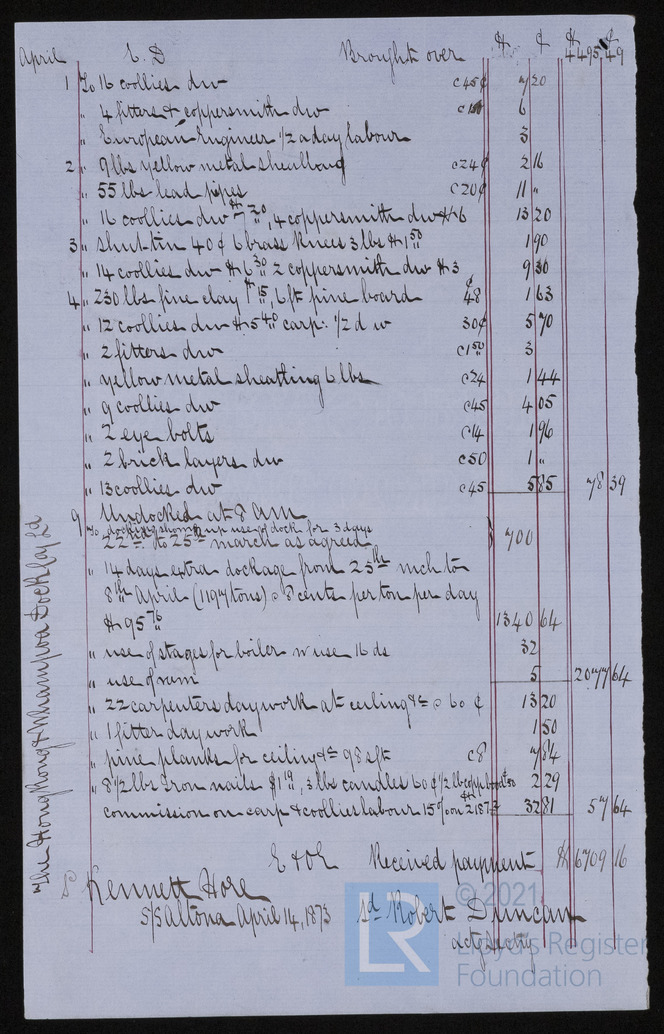 April E. D Brought over $ ¢ $ ¢ 4495,49
1 To 16 coollies dw c45¢ 7 20
" 4 fitters & coppersmith dw c150 6
" European Engineer 1/2 a day labour 3
2 " 9 lbs yellow metal c24¢ 2 16
" 55 lbs lead pipes c20¢ 11 "
" 16 coollies dw 7 20, 4 coppersmith dw $6 13 20
3 " shut tin 40¢ 6 brass knees 3 lbs $1 50 1 90
" 14 coollies dw $6 30 2 coppersmith dw $3 9 30
4 " 230 lbs fine clay $1 15, 6 ft pine board ¢ 48 1 63
" 12 coollies dw $5 40 carp: 1/2 d w 30¢ 5 70
" 2 fitters dw c1 50 3
" yellow metal sheatting 6 lbs c24 1 44
" 9 coollies dw c45 4 05
" 2 eye bolts c14 1 96
" 2 brick layers dw c50 1 "
" 13 coollies dw c45 5 85 78 39
9 Undocked at 8 am
To docking use of dock for 3 days
22nd to 25th march as agreed 700
" 14 days extra dockage from 25th mch to
8th April (1197 tons) @ 8 cents per ton per day
$95 76 1340 64
" use of stages for boiler w use 16 ds 32
" use of 5 2077 64
" 22 carpenters day work at ceiling &c @ 60 ¢ 13 20
" 1 fitter day work 1 50
" pine planks for ceiling &c 98 sft c8 7 84
" 8 1/2 lbs Iron nails $1 19, 3 lbs candles 60 ¢ 1/2 lb copp 50 2 29
commission on carp & coollies labour 15% on $ 218.73 32 81 57 64
E & OE Received payment $ 6709 16
P Kennett Hore
S/S Altona April 14, 1873 Sd Robert Duncan
actg Secty
The Hong Kong & Whampoa Dock Coy Ld
© 2021
LR Lloyd's Register
Foundation